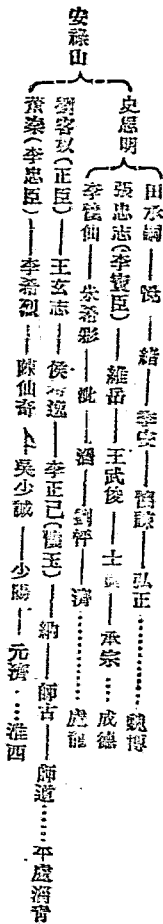 安祿山
史思明
田承嗣——悅——緒——季安——懷諫——弘正……魏博
張忠志(李寶臣)——維岳——王武俊——士真——承宗……成德
李懷仙——朱希彩——泚——滔——劉怦——濟……盧龍
劉客奴(正臣)——王玄志——侯希逸——李正己(懷玉)——納——師古——師道……平盧淄青
董秦(李忠臣)——李希烈——陳仙奇——吳少誠——少陽——元濟……淮西